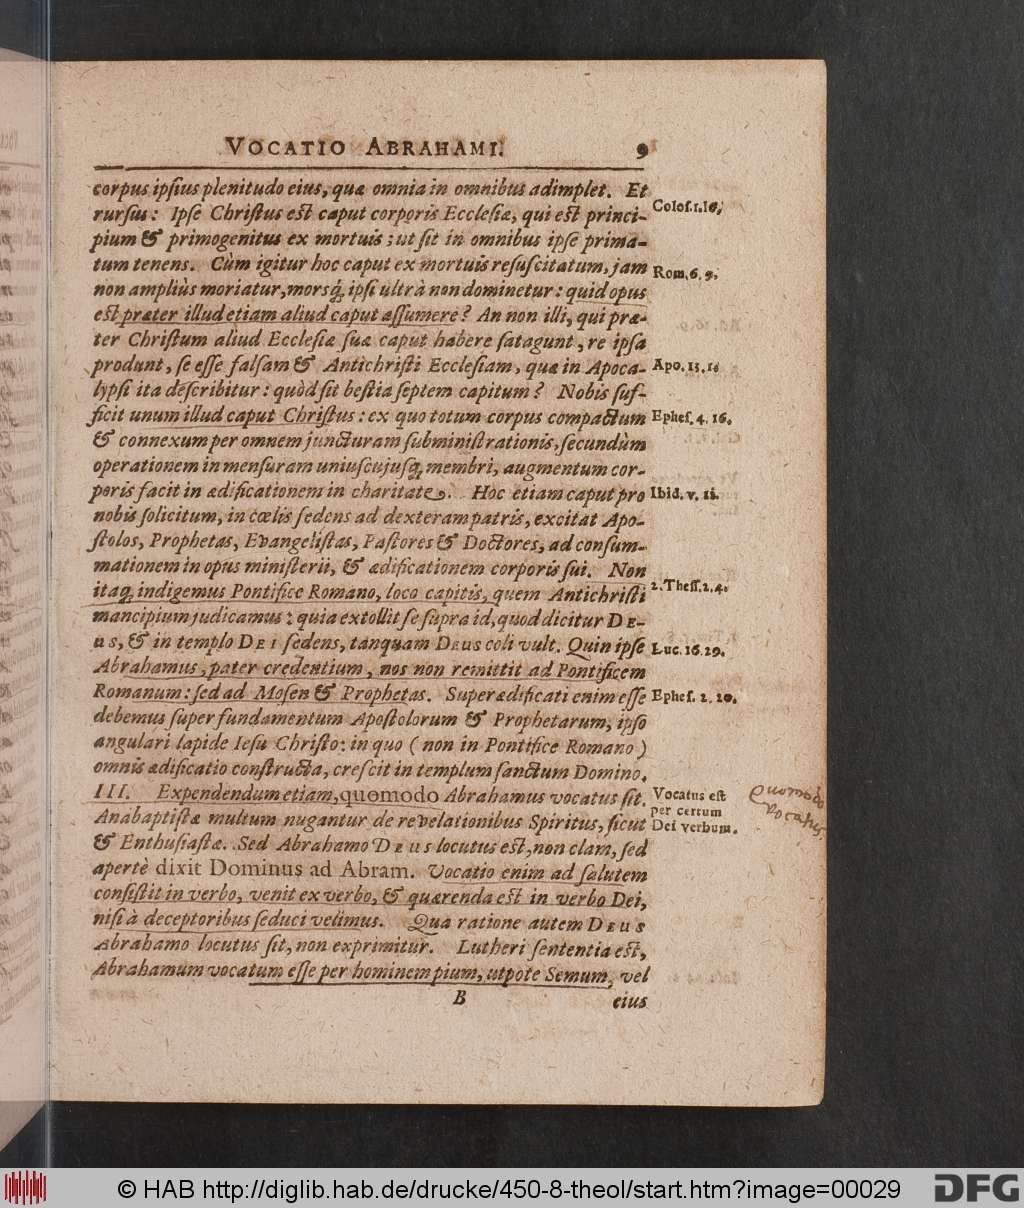 VOCATIO ABRAHAMI. 9
corpus ipſius plenitudo eius, quæ omnia in omnibus adimplet. Et
rurſus: Ipſe Chriſtus eſt caput corporis Eccleſiæ, qui eſt princi-
Coloſ. 1. 18,
pium & primogenitus ex mortuis; ut ſit in omnibus ipſe prima-
tum tenens. Cùm igitur hoc caput ex mortuis reſuſcitatum, jam
Rom. 6. 9.
non ampliùs moriatur, morsq́; ipſi ultrà non dominetur: quid opus
eſt præter illud etiam aliud caput aſſumere? An non illi, qui præ-
ter Chriſtum aliud Eccleſiæ ſuæ caput habere ſatagunt, re ipſa
produnt, ſe eſſe falſam & Antichriſti Eccleſiam, quæ in Apoca-
Apo. 13. 1.
lypſi ita deſcribitur: quòd ſit beſtia ſeptem capitum? Nobis ſuf-
ficit unum illud caput Chriſtus: ex quo totum corpus compactum
Epheſ. 4. 16.
& connexum per omnem juncturam ſubminiſtrationis, ſecundùm
operationem in menſuram uniuſcujuſq́; membri, augmentum cor-
poris facit in ædificationem in charitate. Hoc etiam caput pro
Ibid. v. 11.
nobis ſolicitum, in cœlis ſedens ad dexteram patris, excitat Apo-
ſtolos, Prophetas, Evangeliſtas, Paſtores & Doctores, ad conſum-
mationem in opus miniſterii, & ædificationem corporis ſui. Non
itaq́; indigemus Pontifice Romano, loco capitis, quem Antichriſti
2. Theſſ. 2. 4.
mancipium judicamus: quia extollit ſe ſupra id, quod dicitur DE-
US, & in templo DEI ſedens, tanquam DEUS coli vult. Quin ipſe
Luc. 16. 29.
Abrahamus, pater credentium, nos non remittit ad Pontificem
Romanum: ſed ad Moſen & Prophetas. Superædificati enim eſſe
Epheſ. 2. 20.
debemus ſuper fundamentum Apoſtolorum & Prophetarum, ipſo
angulari lapide Ieſu Chriſto: in quo (non in Pontifice Romano)
omnis ædificatio conſtructa, creſcit in templum ſanctum Domino.
III. Expendendum etiam, quomodo Abrahamus vocatus ſit.
Vocatus eſt
per certum
Dei verbum.
Quomodo
Vocatus
Anabaptiſtæ multum nugantur de revelationibus Spiritus, ſicut
& Enthuſiaſtæ. Sed Abrahamo DEUS locutus eſt, non clam, ſed
apertè dixit Dominus ad Abram. Vocatio enim ad ſalutem
conſiſtit in verbo, venit ex verbo, & quærenda eſt in verbo Dei,
niſi à deceptoribus ſeduci velimus. Qua ratione autem DEUS
Abrahamo locutus ſit, non exprimitur. Lutheri ſententia eſt,
Abrahamum vocatum eſſe per hominem pium, utpote Semum, vel
B eius
© HAB http://diglib.hab.de/drucke/450-8-theol/start.htm?image=00029 DFG